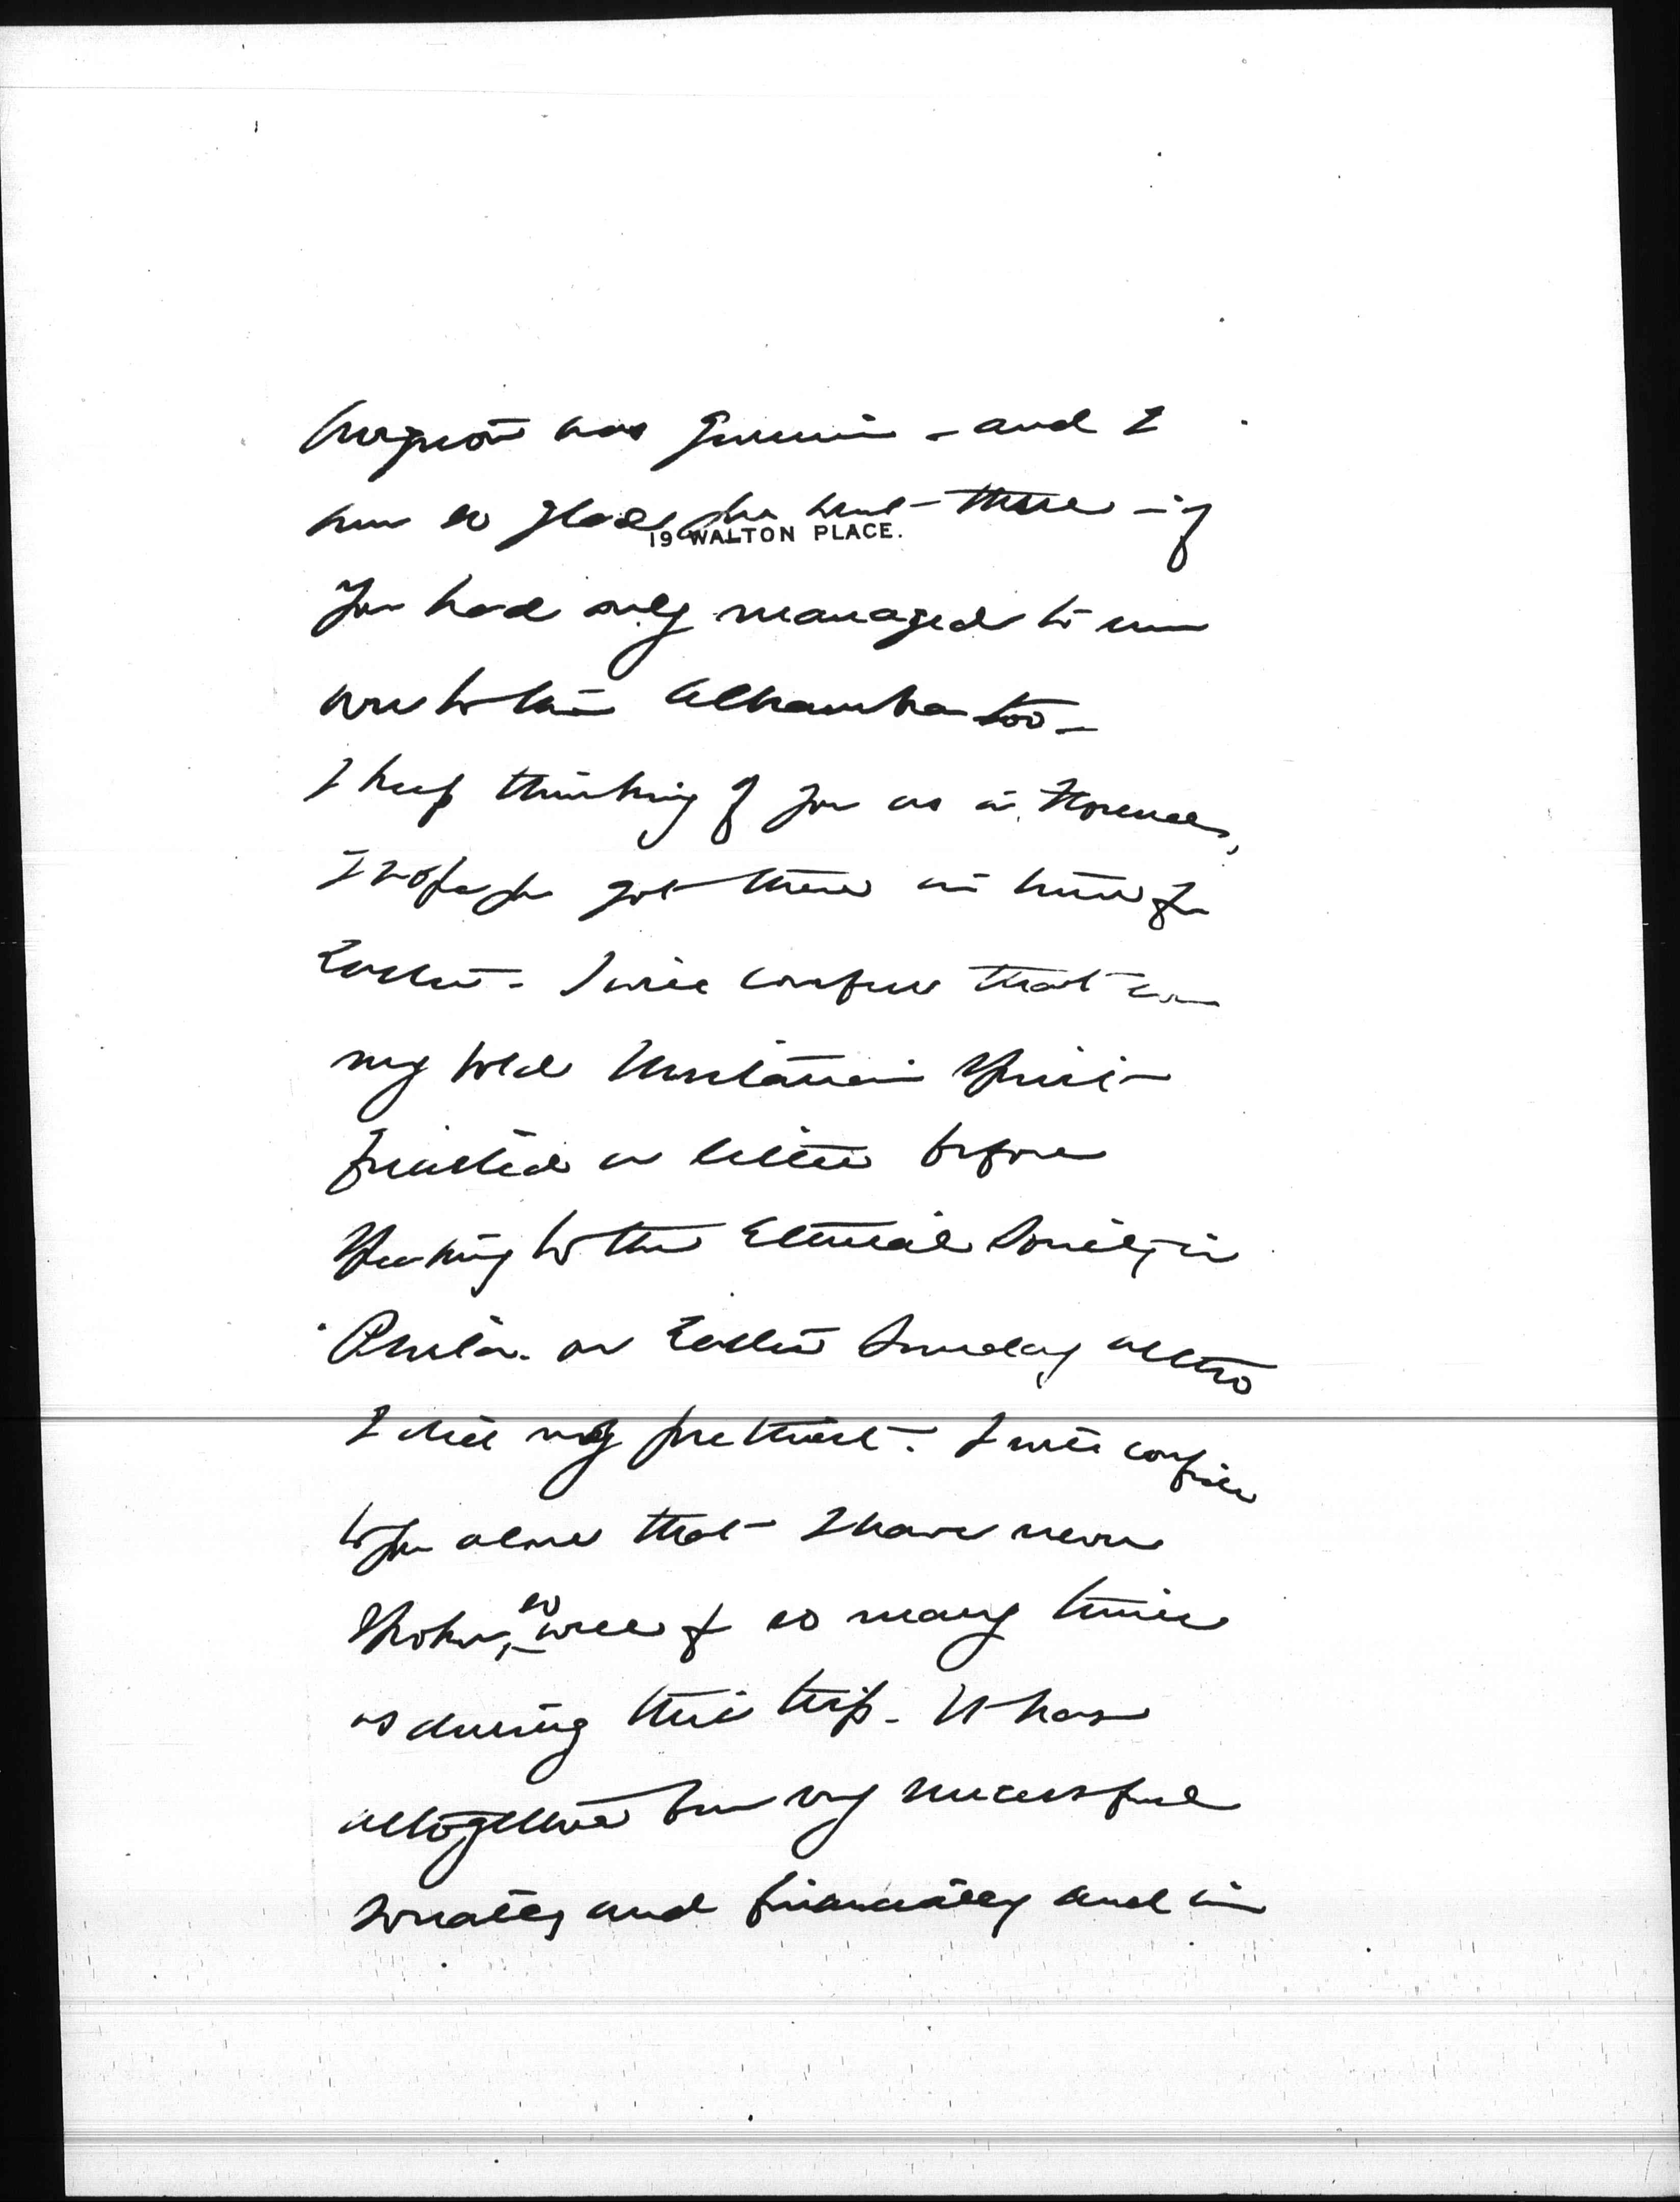 was genuine - and I
am so glad you went there - if
19 WALTON PLACE.
you had only managed to
Alhambra too -
I keep thinking of you as in Florence,
I hope you got there in time for
Easter - I will confess that
my bold Unitarian spirit
fainted a little before
speaking to the Ethical Society in
Phila. on Easter Sunday altho
I did my prettiest. I will confide
to you alone that I have never
spoken so well & so many times
as during this trip. It has
altogether been very successful
socially and financially and in